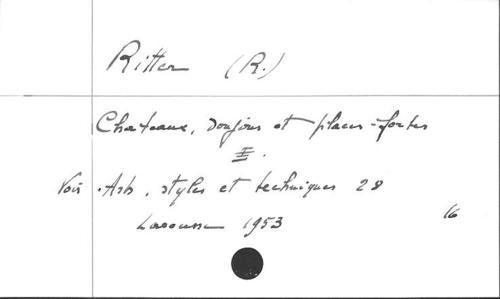 Ritter (R.)
Chateaux, donjons et places-fortes
II.
Voir Arts, styles et techniques 28
Larousse 1953
16